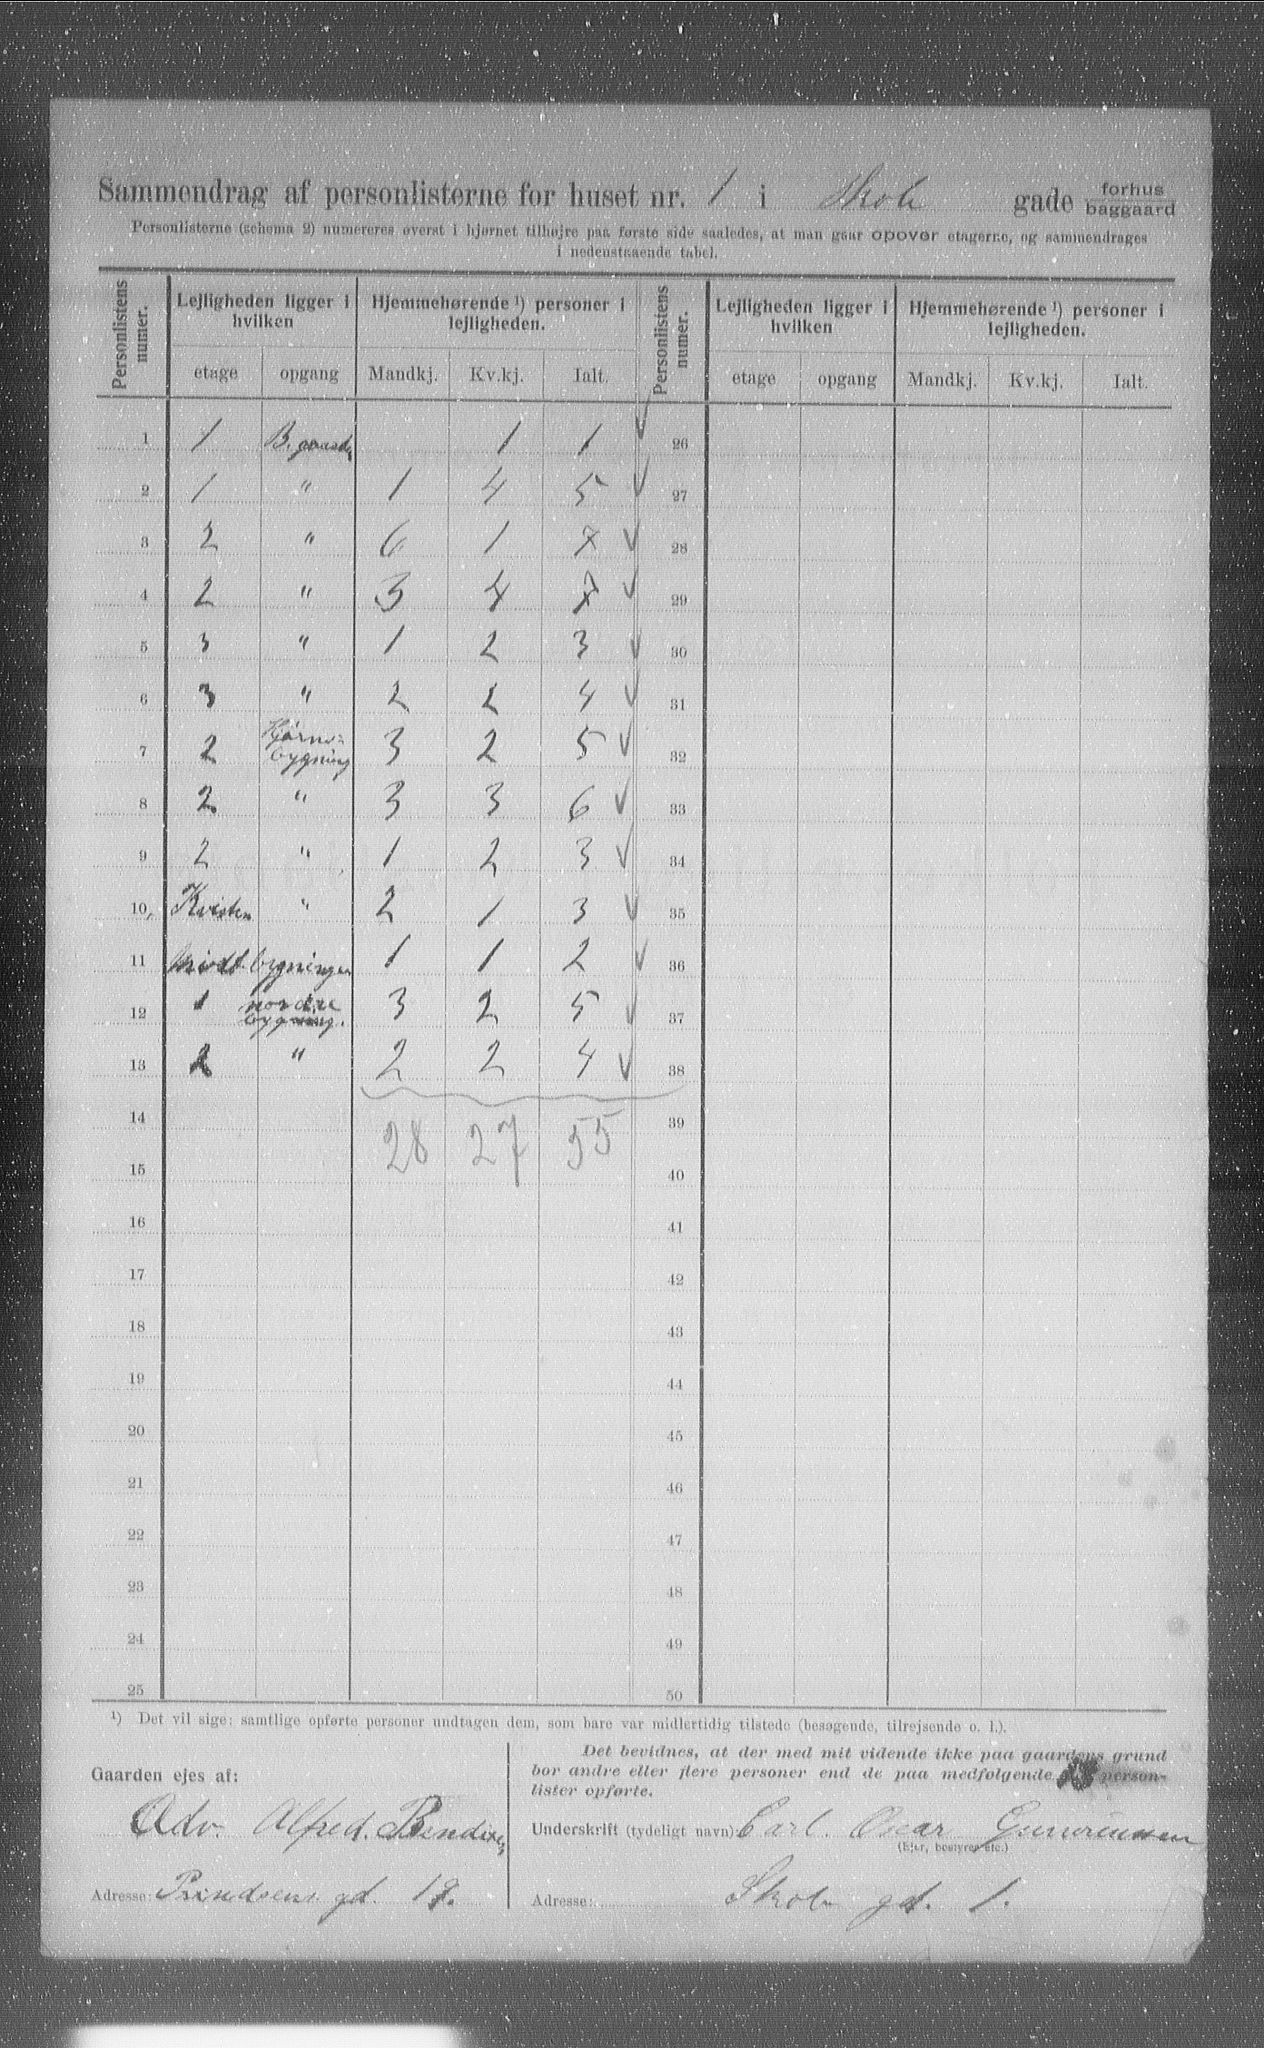 Sammendrag af personlisterne for huset nr. 1 i Skole gade forhus
baggaard
Personlisterne (schema 2) numereres øverst i hjørnet tilhøjre paa første side saaledes, at man gaar opover etagerne, og sammendrages
i nedenstaaende tabel.
Personlistens numer. Lejligheden ligger i hvilken Hjemmehørende ¹) personer i lejligheden. Personlistens numer. Lejligheden ligger i hvilken Hjemmehørende ¹) personer i lejligheden.
etage opgang Mandkj. Kv.kj. Ialt. etage opgang Mandkj. Kv.kj. Ialt.
1 1 B. gaarden 1 1 ✓ 26
2 1 " 1 4 5 ✓ 27
3 2 " 6 1 7 ✓ 28
4 2 " 3 4 7 ✓ 29
5 3 " 1 2 3 ✓ 30
6 3 " 2 2 4 ✓ 31
7 2 Hjørne- bygning 3 2 5 ✓ 32
8 2 " 3 3 6 ✓ 33
9 2 " 1 2 3 ✓ 34
10 Kvisten " 2 1 3 ✓ 35
11 Midtbygningen 1 1 2 ✓ 36
12 1 nordre bygning. 3 2 5 ✓ 37
13 2 " 2 2 4 ✓ 38
14 28 27 55 39
15 40
16 41
17 42
18 43
19 44
20 45
21 46
22 47
23 48
24 49
25 50
¹) Det vil sige: samtlige opførte personer undtagen dem, som bare var midlertidig tilstede (besøgende, tilrejsende o. l.).
Gaarden ejes af:
Adv. Alfred Bendixen
Adresse: Prindsens gd. 19.
Det bevidnes, at der med mit vidende ikke paa gaardens grund
bor andre eller flere personer end de paa medfølgende person-
lister opførte.
Underskrift (tydeligt navn) Carl. Oscar
(Ejer, bestyrer etc.)
Adresse: Skole gd. 1.